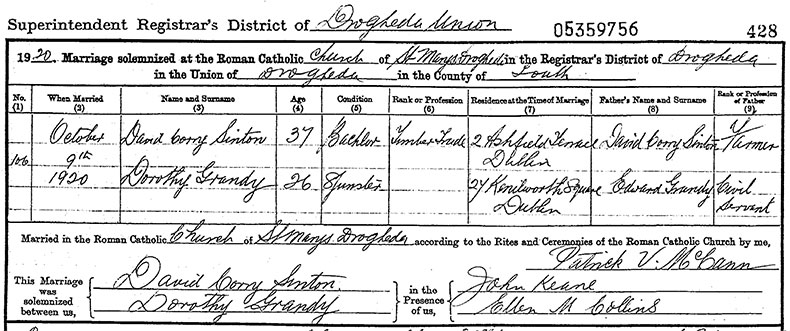 Superintendent Registrar's District of Drogheda Union 05359756 428
1920. Marriage solemnized at the Roman Catholic Church of St Marys Drogheda in the Registrar's District of Drogheda
in the Union of Drogheda in the County of Louth
No. When Married Name and Surname Age Condition Rank or Profession Residence at the Time of Marriage Father's Name and Surname Rank or Profession of Father
(1) (2) (3) (4) (5) (6) (7) (8) (9)
October David Corry Sinton 37 Bachlor Timber Trade 2 Ashfield Terrace David Corry Sinton Farmer
Dublin
106 9th
1920 Dorothy Grandy 26 Spinster 27 Kenilworth Square Edward Grandy Civil
Dublin Servant
Married in the Roman Catholic Church of St Marys Drogheda according to the Rites and Ceremonies of the Roman Catholic Church by me,
Patrick V. McCann
This Marriage was solemnized between us,
David Corry Sinton.
Dorothy Grandy
in the Presence of us,
John Keane
Ellen M Collins